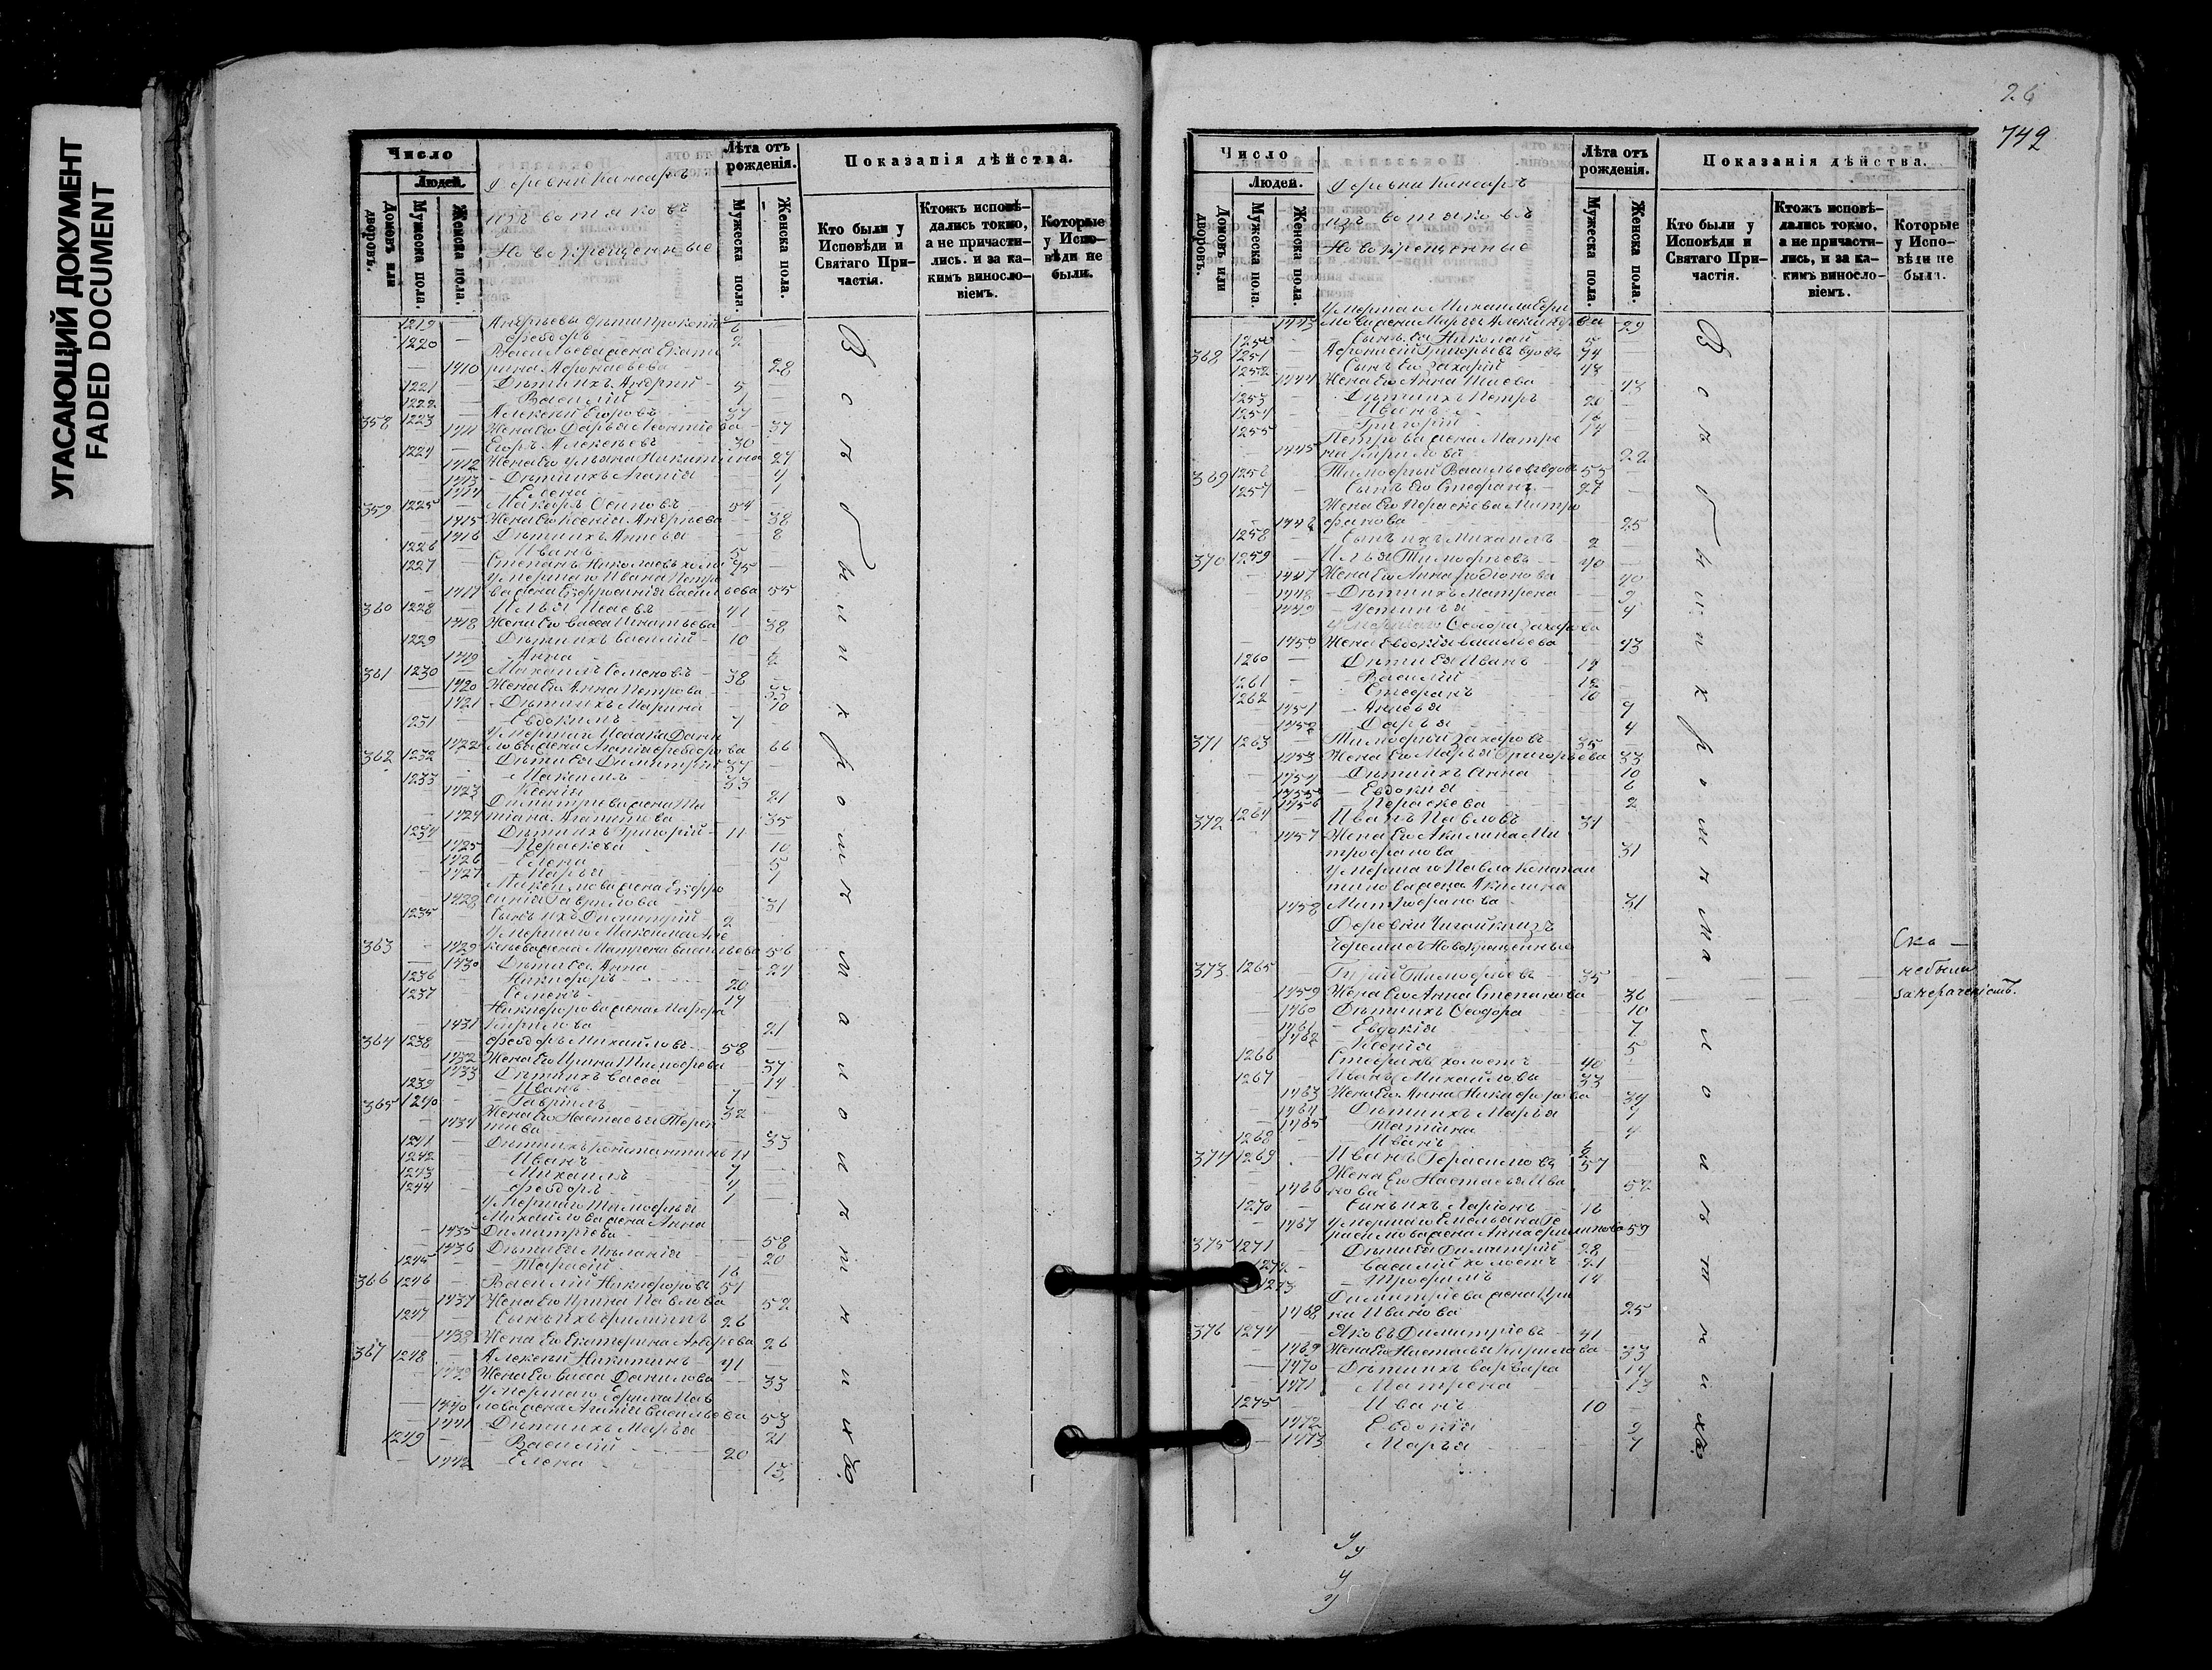 УГАСАЮЩИЙ ДОКУМЕНТ
FADED DOCUMENT
Число
Людей.
Домовъ или дворовъ.
Мужеска пола.
Женска пола.
Деревни Кинсаръ
изъ вотяковъ
Новокрещенные
Лѣта отъ рожденія.
Мужеска пола.
Женска пола.
Показанія дѣйства.
Кто были у Исповѣди и Святаго Причастія.
Ктожъ исповѣдались токмо, а не причастились. и за какимъ винословіемъ.
Которые у Исповѣди не были.
1219 — Андрѣевы дѣти Прокопій 6 —
1220 — Феодоръ 2 —
Васильева жена Екате
— 1410 рина Афонасьева — 28
1221 — Дѣти ихъ Андрей 5 —
1222 — Василій 1 —
358 1223 — Алексѣй Егоровъ 37
1411 Жена его Дарья Леонтіева 37
1224 — Егоръ Алексѣевъ 30
1412 Жена его Ульяна Никитина 27
1413 Дѣти ихъ Агапія 4
1414 Елена 1
359 1225 — Макаръ Осиповъ 54
1415 Жена его Ксенія Андрѣева — 38
1416 Дѣти ихъ Анисья — 8
1226 — Иванъ 5
1227 — Степанъ Николаевъ холос 45 —
Умершаго Ивана Петро
— 1417 ва жена Евфросинія Васильева 55
360 1228 — Илья Исаевъ 41
1418 Жена его Васса Игнатьева — 38
1229 — Дѣти ихъ Василій 10
1419 Анна 2
361 1230 — Михаилъ Семеновъ 38
1420 Жена его Анна Петрова — 33
1421 Дѣти ихъ Марина — 10
1231 — Евдокимъ 7
Умершаго Исаака Дани
1422 лова жена Агапія Феодорова 66
362 1232 — Дѣти ея Димитрій 37
1233 — Максимъ 33
1423 Ксенія — 21
Димитріева жена Та
— 1424 тіана Агапитова — 35
1234 — Дѣти ихъ Григорій 11
1425 Пераскева — 10
1426 Елена — 5
1427 Марья — 1
Максимова жена Евфро
1428 синія Гаврилова — 31
1235 — Сынъ ихъ Димитрій 2
Умершаго Максима Але
363 — 1429 ксѣева жена Матрена Васильева 56
— 1430 Дѣти ея Анна — 24
1236 — Никифоръ 20
1237 — Семенъ 17
Никифорова жена Марфа
— 1431 Кирилова — 21
364 1238 — Феодоръ Михайловъ 58
— 1432 Жена его Ирина Тимофеева — 37
— 1433 Дѣти ихъ Васса — 14
1239 — Иванъ 7
365 1240 — Гавріилъ 32
Жена его Настасья Терен
1434 тіева — 33
1241 — Дѣти ихъ Константинъ 11
1242 — Иванъ 7
1243 — Михаилъ 4
1244 — Феодоръ 1
Умершаго Тимофея
Михайлова жена Анна
— 1435 Димитріева — 58
— 1436 Дѣти ея Меланія — 20
1245 — Тарасій 16
366 1246 — Василій Никифоровъ 51
— 1437 Жена его Ирина Павлова — 52
1247 — Сынъ ихъ Филиппъ 26
— 1438 Жена его Екатерина Андреева 26
367 1248 — Алексѣй Никитинъ 41
— 1439 Жена его Васса Данилова — 33
Умершаго Ефима Пав
— 1440 лова жена Агапія Васильева 53
— 1441 Дѣти ихъ Марья — 21
1249 — Василій 20
— 1442 Елена — 13
Всѣ были и къромъ маиоиктнихъ
26
749
Число
Людей.
Домовъ или дворовъ.
Мужеска пола.
Женска пола.
Деревни Кинсаръ
изъ вотяковъ
Новокрещенные
Лѣта отъ рожденія.
Мужеска пола.
Женска пола.
Показанія дѣйства.
Кто были у Исповѣди и Святаго Причастія.
Ктожъ исповѣдались токмо, а не причастились, и за какимъ винословіемъ.
Которые у Исповѣди не были.
Умершаго Михаила Ефи
1443 мова жена Марья Александрова 29
1250 — Сынъ ея Николай 5
368 1251 — Афонасій Григорьевъ вдовъ 74
1252 — Сынъ его Захарій 48
— 1444 Жена его Анна Исаева — 43
1253 — Дѣти ихъ Петръ 20
1254 — Иванъ 16
1255 — Григорій 14
Петрова жена Матре
1445 на Кирилова — 22
369 1256 — Тимофей Васильевъ вдовъ 55
1257 — Сынъ его Стефанъ 27
Жена его Пераскева Митро
1446 фанова — 25
1258 — Сынъ ихъ Михаилъ 2
370 1259 — Илья Тимофѣевъ 40
1447 Жена его Анна Родіонова 40
1448 Дѣти ихъ Матрена — 9
1449 Устинья — 4
Умершаго Феодора Захарова
— 1450 Жена Евдокія Васильева — 43
1260 — Дѣти ея Иванъ 17
1261 — Василій 12
1262 — Стефанъ 10
— 1451 Анисья — 7
— 1452 Дарья — 4
371 1263 — Тимофей Захаровъ 35
— 1453 Жена его Марья Григорьева 33
— 1454 Дѣти ихъ Анна 10
1455 Евдокія 6
1456 Пераскева 2
372 1264 — Иванъ Павловъ 31
1457 Жена его Акилина Ми
трофанова — 31
Умершаго Павла Констан
тинова жена Акилина
1458 Митрофанова 31
Деревни
Черемисъ Новокрещенные
373 1265 — Гурій Тимофѣевъ 35
1459 Жена его Анна Степанова 36
— 1460 Дѣти ихъ Феодора 10
1461 Евдокія 7
1462 Ксенія 5
1266 — Стефанъ холостъ 40
1267 — Иванъ Михайловы 33
1463 Жена его Анна Никифорова 34
1464 Дѣти ихъ Марья 7
1465 Татіана 4
1268 — Иванъ 2
374 1269 — Иванъ Герасимовъ 57
Жена его Настасья Ива
1466 нова — 52
1270 — Сынъ ихъ Ларіонъ 16
— 1467 Умершаго Емельяна Ге
расимова жена Анна Филиппова 59
375 1271 Дѣти ея Димитрій 28
1272 — Василій холостъ 21
1273 — Трофимъ 14
Димитріева жена Ири
— 1468 на Иванова — 25
376 1274 — Яковъ Димитріевъ 41
— 1469 Жена его Настасья Кирилова 33
— 1470 Дѣти ихъ Варвара 14
— 1471 Матрена 13
1275 — Иванъ 10
— 1472 Евдокія 9
— 1473 Марья 7